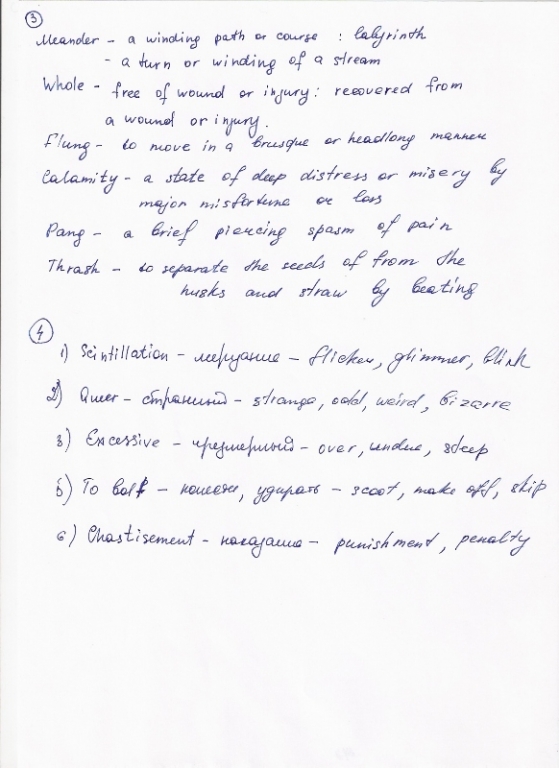 3
Meander - a winding path or course : labyrinth
- a turn or winding of a stream
Whole - free of wound or injury: recovered from
a wound or injury.
Flung - to move in a brusque or headlong manner
Calamity - a state of deep distress or misery by
major misfortune or loss
Pang - a brief piercing spasm of pain
Thrash - to separate the seeds of from the
husks and straw by beating
4
1) Scintillation - мерцание - flicker, glimmer, blink
2) Queer - странный - strange, odd, weird, bizarre
3) Excessive - чрезмерный - over, undue, steep
5) To bolt - удирать - scoot, make off, skip
6) Chastisement - наказание - punishment, penalty